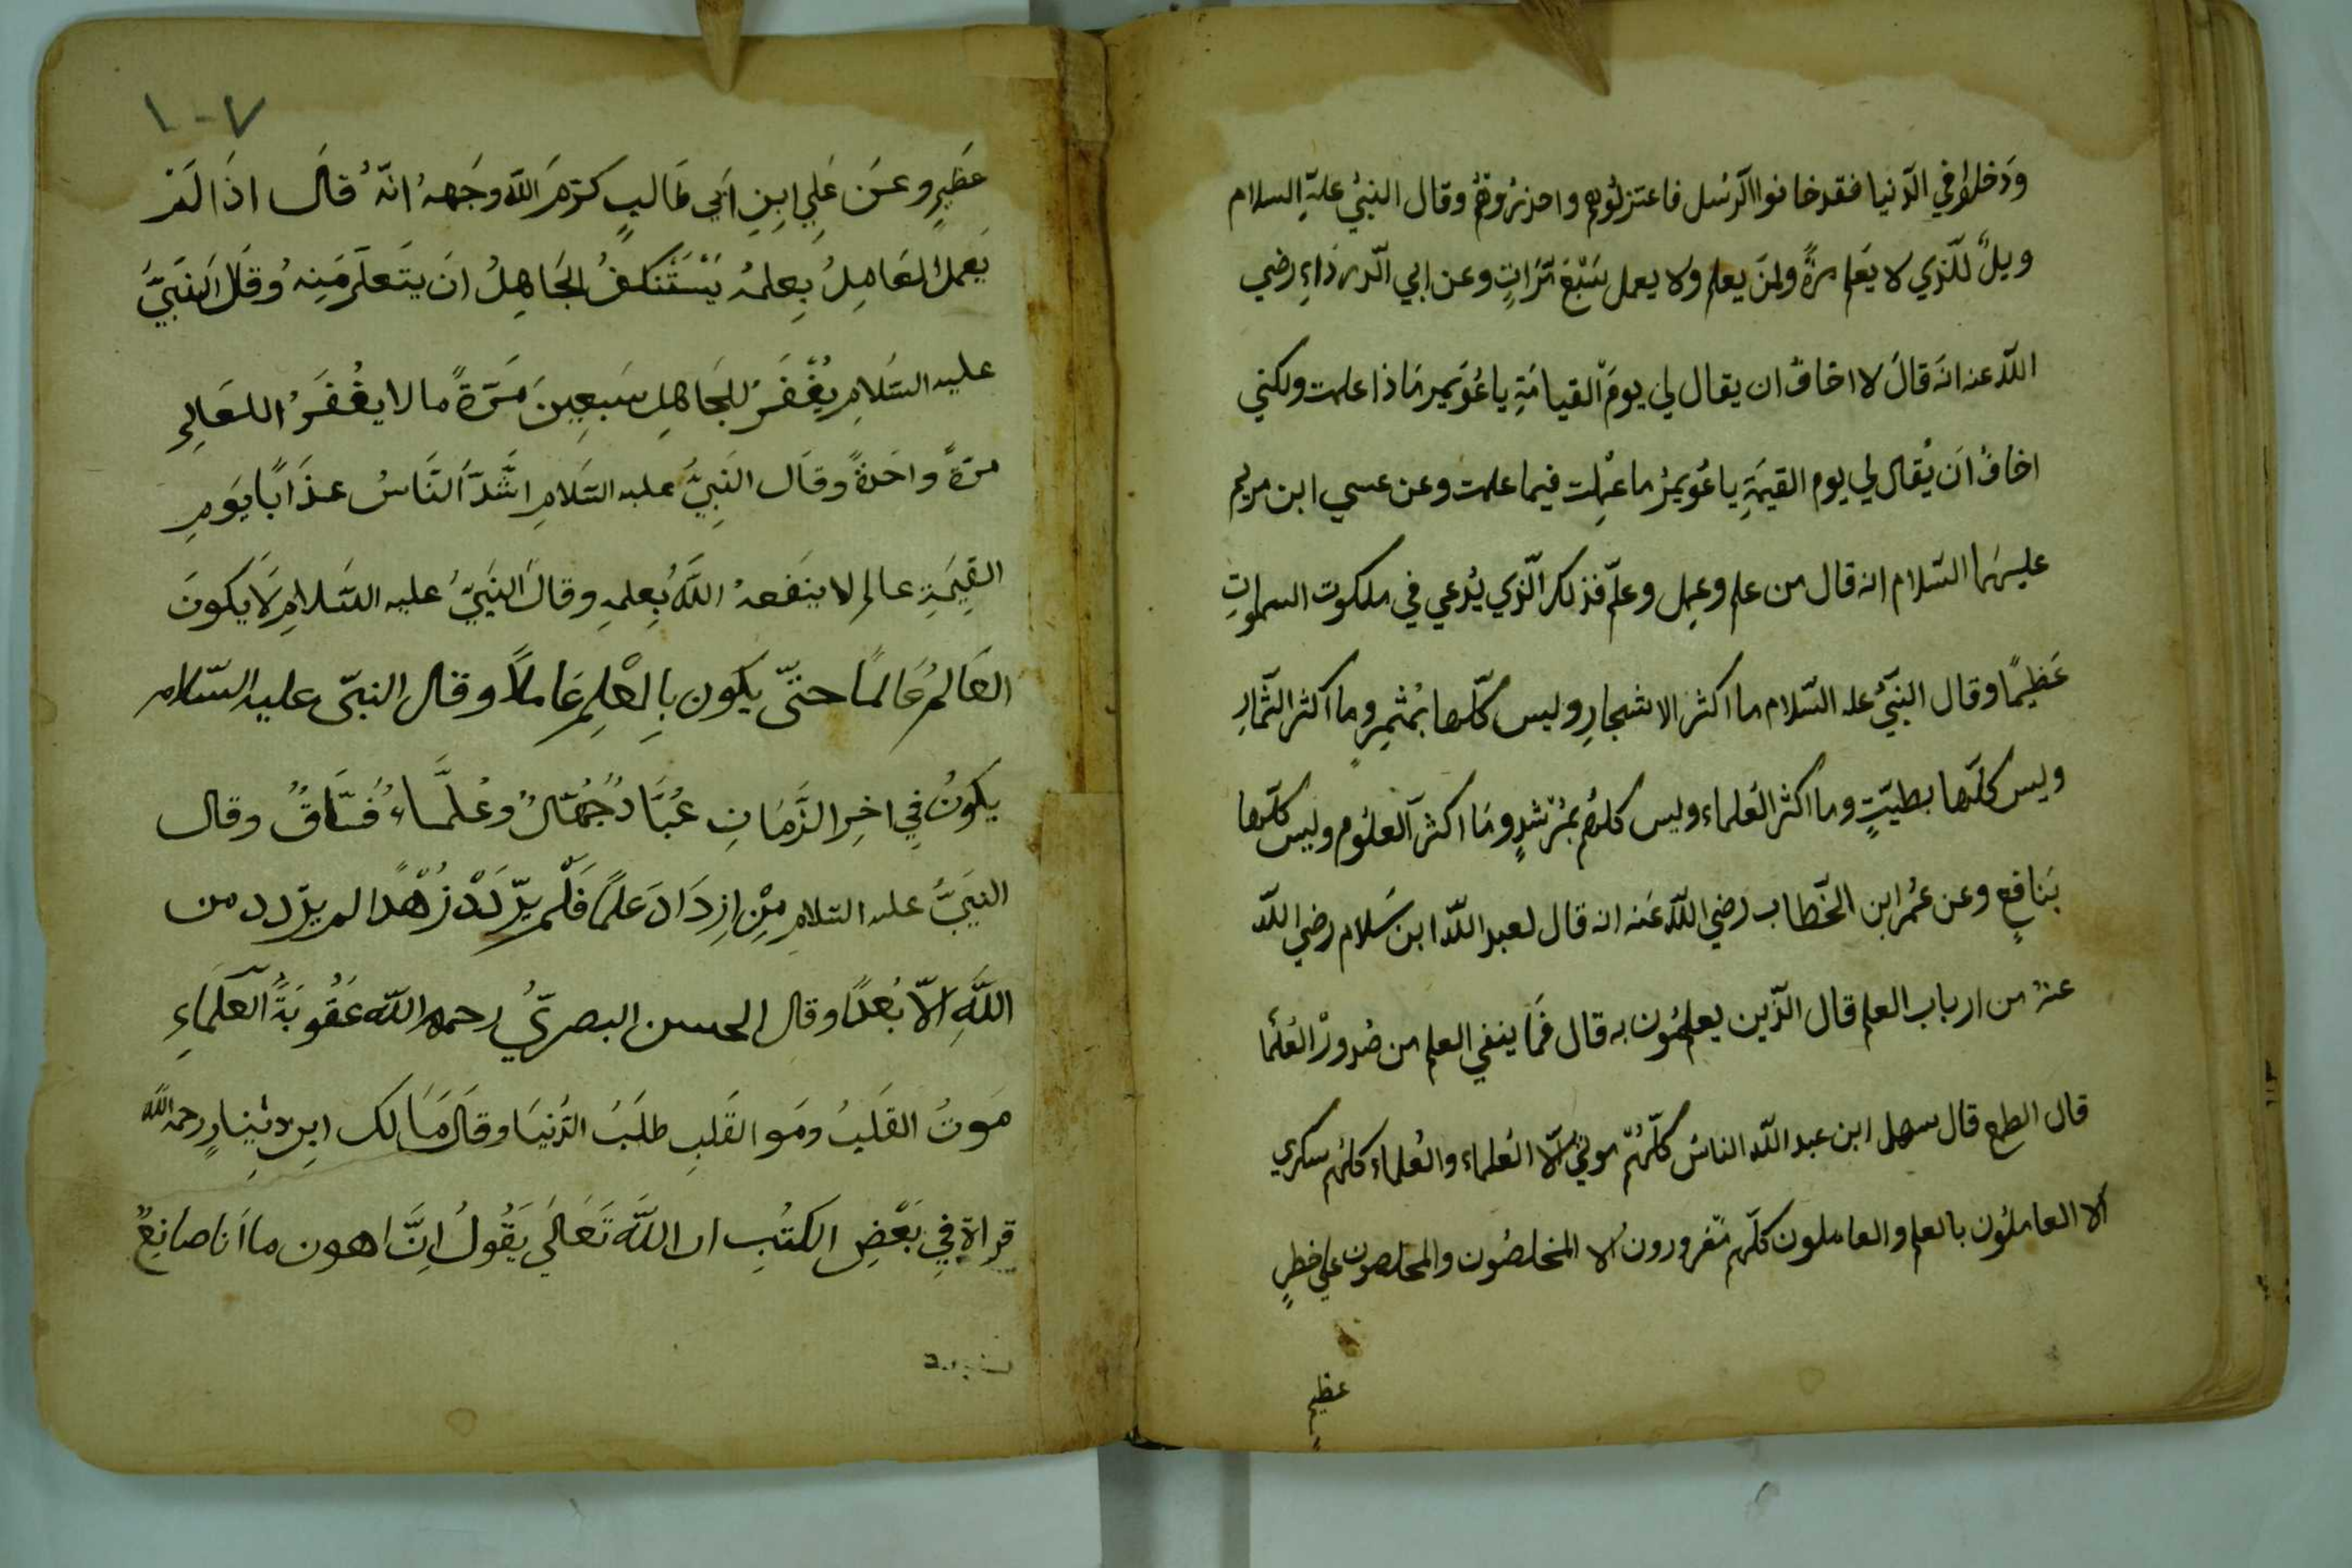 ودخلوا في الدنيا فقد خانوا الرسل فاعتزلوهم واحذروهم وقال النبي عليه السلام
ويل للذي لا يعلم مرة ولمن يعلم ولا يعمل سبع مرات وعن ابي الدرداء رضي
الله عنه انه قال لا اخاف ان يقال لي يوم القيامة يا عويمر ماذا علمت ولكني
اخاف ان يقال لي يوم القيمة يا عويمر ما عملت فيما علمت وعن عسي ابن مريم
عليهما السلام انه قال من علم وعمل وعلم فذلك الذي يدعي في ملكوت السموات
عظيما وقال النبي عليه السلام ما اكثر الاشجار وليس كلها بمثمر وما اكثر الثمار
وليس كلها بطيب وما اكثر العلماء وليس كلهم بمرشد وما اكثر العلوم وليس كلها
بنافع وعن عمر ابن الخطاب رضي الله عنه انه قال لعبد الله ابن سلام رضي الله
عنه من ارباب العلم قال الذين يعلمون به قال فما ينفي العلم من صدور العلما
قال الطمع قال سهل ابن عبد الله الناس كلهم موتي الا العلماء والعلماء كلهم سكري
الا العاملون بالعلم والعاملون كلهم مغرورون الا المخلصون والمخلصون علي خطر
عظيم
١٠٧
عظيم وعن علي ابن ابي طالب كرم الله وجهه انه قال اذا لم
يعمل العامل بعلمه يستنكف الجاهل ان يتعلم منه وقال النبي
عليه السلام يغفر للجاهل سبعين مرة ما لا يغفر اللعالم
مرة واحدة وقال النبي عليه السلام اشد الناس عذابا يوم
القيمة عالم لا ينفعه الله بعلمه وقال النبي عليه السلام لا يكون
العالم عالما حتى يكون بالعلم عاملا وقال النبى عليه السلام
يكون في اخر الزمان عباد جهال وعلماء فساق وقال
النبي عليه السلام من ازداد علما فلم يزدد زهدا لم يزدد من
الله الا بعدا وقال الحسن البصري رحمه الله عقوبة العلماء
موت القلب ومو القلب طلب الدنيا وقال مالك ابن دينار رحمه الله
قراة في بعض الكتب ان الله تعالي يقول ان اهون ما انا صانع